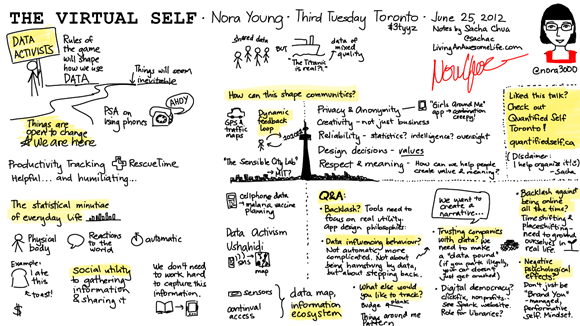 THE VIRTUAL SELF · Nora Young · Third Tuesday Toronto · June 25, 2012
#3tyyz
Notes by Sacha Chua
@sachac
LivingAnAwesomeLife.com
@nora3000
DATA
ACTIVISTS
Rules of
the game
will shape
how we use
DATA
Things will seem
inevitable
Things are
open to change
We are here
PSA on
using phones
AHOY
Productivity Tracking
RescueTime
Helpful... and humiliating...
shared data
BUT
data of
mixed
quality
"The Titanic
is real?!"
How can this shape communities?
GPS &
traffic
maps
Dynamic
feedback
loop
"The Sensible City Lab"
MIT?
Privacy & Anonymity
"Girls Around Me"
app → combination
creepy!
Creativity - not just business
Reliability - statistics? intelligence? oversight
Design decisions - values
Respect & meaning - How can we help people
create value & meaning?
Liked this talk?
Check out
Quantified Self
Toronto!
quantifiedself.ca
(Disclaimer:
I help organize it!)
-Sacha
The statistical minutiae
of everyday life
Physical
body
Reactions
to the
world
automatic
Example:
I ate
this
& toast!
$
social utility
to gathering
information
& sharing it
We don't need
to work hard
to capture this
information.
cellphone data
malaria vaccine
planning
Data Activism
Ushahidi
SMS
map
sensors
continual
access
data map,
information
ecosystem
Q&A:
· Backlash? Tools need to
focus on real utility.
app design philosophies:
· Data influencing behaviour?
Not automatic, more
complicated. Not about
being hemmed by
data,
but about stepping back.
· What else would
you like to track?
Budget
Things around me
Pattern
We want to
create a
narrative...
· Trusting companies
with data? We need to
make a
"data pound"
(if you park illegally,
your car doesn't
just get crushed)
· Digital democracy?
clickfix, nonprofits.
See Spark website.
Role for libraries?
· Backlash against
being online
all the time?
Time shifting &
placeshifting -
need to ground
ourselves in
real life.
· Negative
psychological
effects?
Don't just be
"Brand You" -
managed,
performative
self. Mindset.